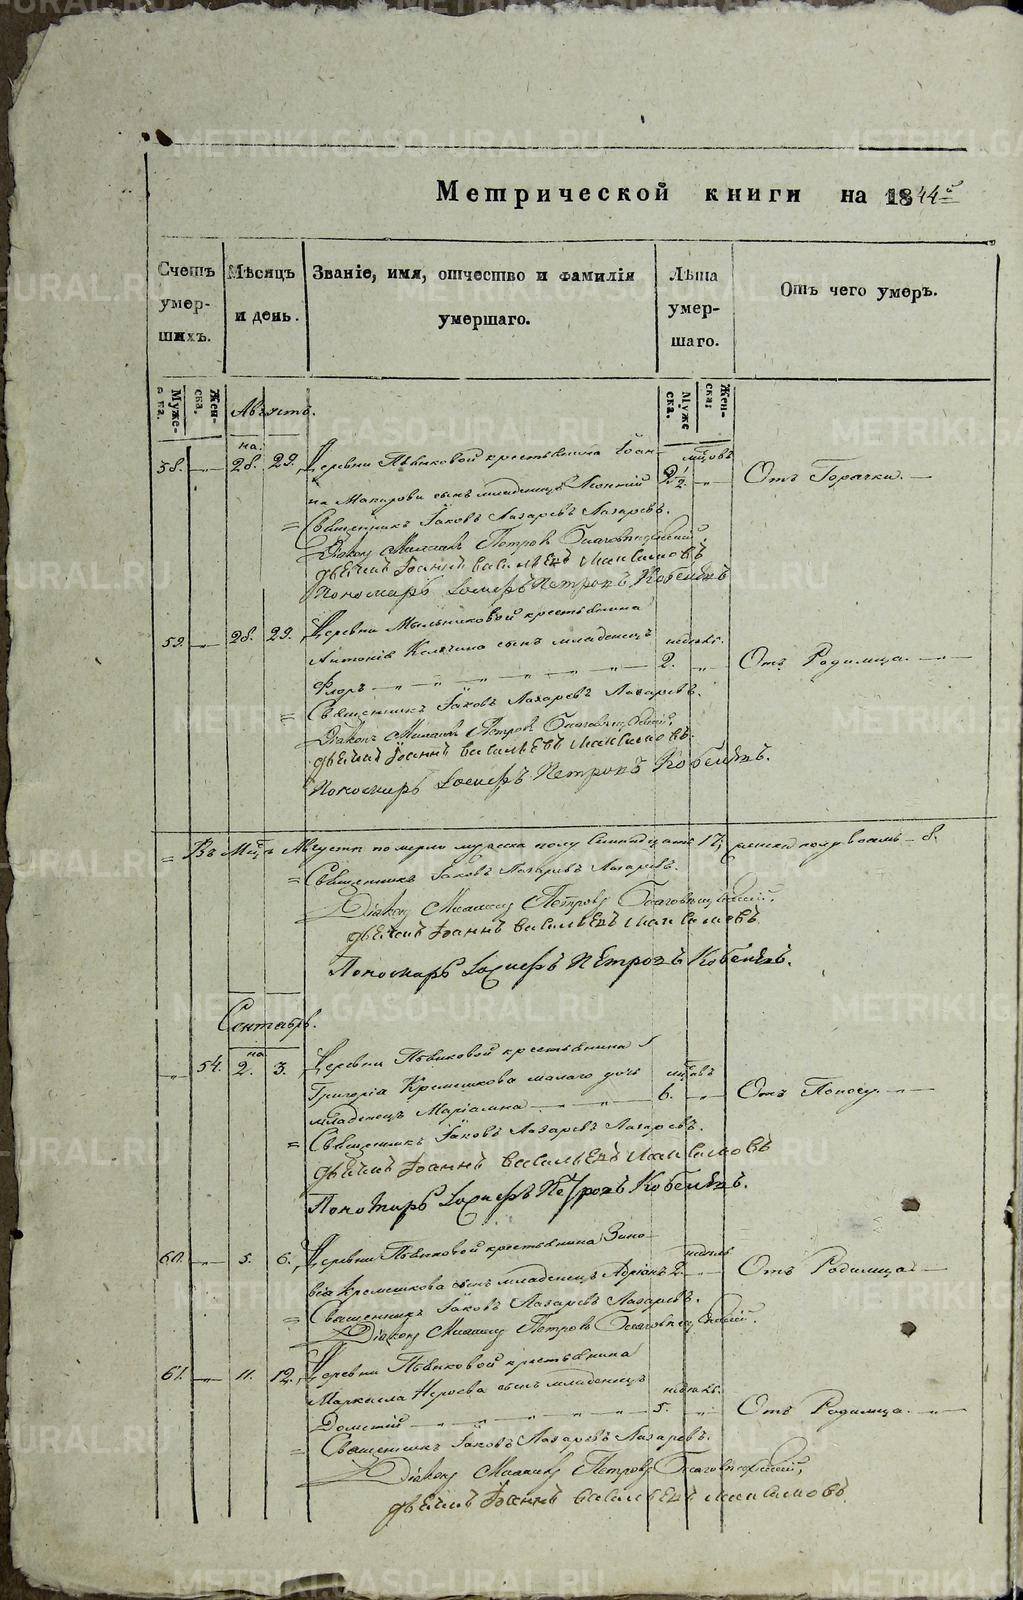 Метрической книги на 1844ᵒ
Счетъ умер-шихъ.
Мѣсяцъ и день.
Званіе, имя, отчество и фамилія умершаго.
Лѣта умер-шаго.
Отъ чего умеръ.
Муже-ска.
Жен-ска.
Муже ска.
Жен-ска:
Августъ.
на
58. — „ — 28. 29. Деревни Пьянковой крестьянина Іоан- мцовъ
на Макарова сынъ младенецъ Леонтій 2 1/2 — „ — Отъ Горячки. —
= Священникъ Іаковъ Лазаревъ Лазаревъ.
Діаконъ Михаилъ Петровъ Благовѣщенскій,
дьячикъ Іоаннъ Васильевъ Максимовъ
Пономарь Іосифъ Петровъ Кобелевъ
59. — „ — 28. 29. Деревни Мыльниковой крестьянина
Антонія сынъ младенецъ недѣль.
Флоръ — „ — „ — „ — „ — 2. — „ — Отъ Родимца. — „ —
= Священникъ Іаковъ Лазаревъ Лазаревъ.
Діаконъ Михаилъ Петровъ Благовѣщенскій,
дьячикъ Іоаннъ Васильевъ Максимовъ.
Пономарь Іосифъ Петровъ Кобелевъ.
= Въ Мцѣ Августѣ померло мужеска полу Семнадцать 17, женска полу восемь — 8.
= Священникъ Іаковъ Лазаревъ Лазаревъ.
Діаконъ Михаилъ Петровъ Благовѣщенскій,
дьячикъ Іоаннъ Васильевъ Максимовъ
Пономарь Іосифъ Петровъ Кобелевъ.
Сентябрь.
на
— „ — 54. 2. 3. Деревни Пьянковой крестьянина
Григорія Кремешкова малаго дочь мцовъ
младенецъ Маріамна — „ — „ — 6. — „ — Отъ Поносу. — „ —
= Священникъ Іаковъ Лазаревъ Лазаревъ.
дьячикъ Іоаннъ Васильевъ Максимовъ
Пономарь Іосифъ Петровъ Кобелевъ.
60. — „ — 5. 6. Деревни Пьянковой крестьянина Зино- недѣль
вія Кремешкова сынъ младенецъ Адріанъ 2. — „ — Отъ Родимца. —
= Священникъ Іаковъ Лазаревъ Лазаревъ.
Діаконъ Михаилъ Петровъ Благовѣщенскій.
61. — „ — 11. 12. Деревни Пьянковой крестьянина
Маркела сынъ младенецъ недѣль.
Дометій — „ — „ — „ — 5. — „ — Отъ Родимца. — „ —
= Священникъ Іаковъ Лазаревъ Лазаревъ.
Діаконъ Михаилъ Петровъ Благовѣщенскій,
дьячикъ Іоаннъ Васильевъ Максимовъ
METRIKI.GASO-URAL.RU